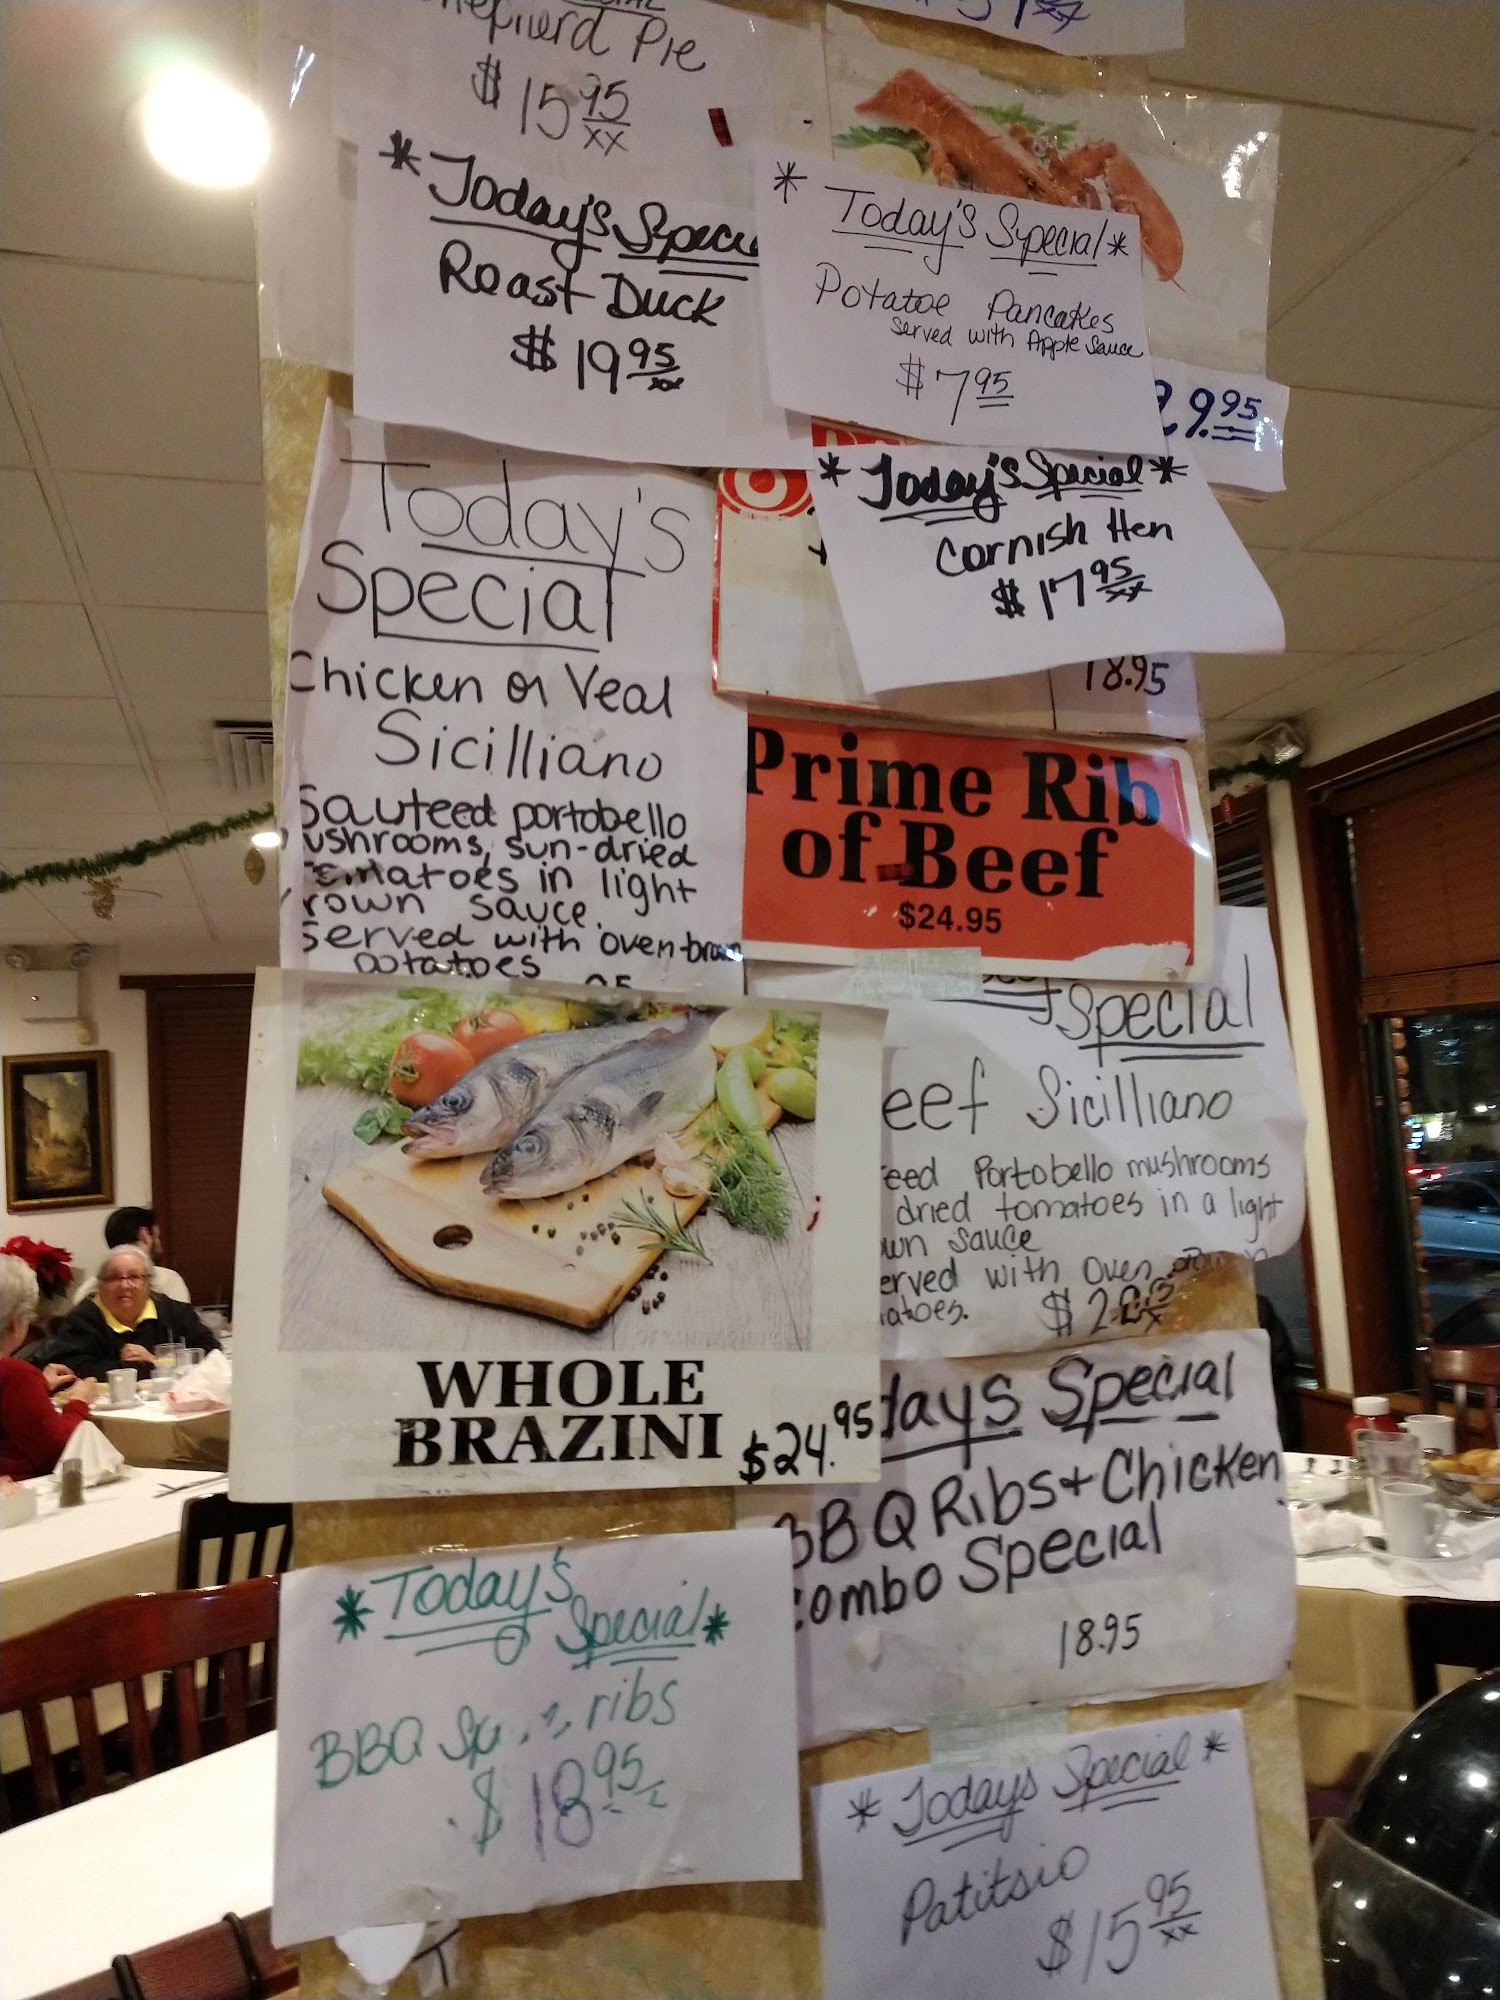 Pie
$15.95
xx
* Today's
Roast Duck
$19.95
xx
* Today's Special *
Potatoe Pancakes
served with Apple Sauce
$7.95
29.95
* Today's Special *
Cornish Hen
$17.95
xx
18.95
Today's
Special
Chicken or Veal
Sicilliano
Sauteed portobello
ushrooms, sun-dried
tomatoes in light
rown sauce.
served with oven-brown
potatoes
Prime Rib
of Beef
$24.95
Special
eef Sicilliano
eed Portobello mushrooms
dried tomatoes in a light
wn sauce
erved with oven
atoes.
WHOLE
BRAZINI
$24.95
days Special
BBQ Ribs + Chicken
Combo Special
18.95
* Today's
Special *
BBQ ribs
$18.95
* Todays Special *
Patitsio
$15.95
xx